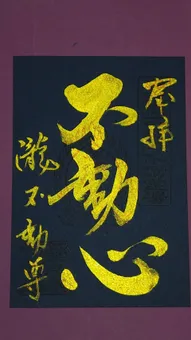 奉拝
不動心
瀧不動尊